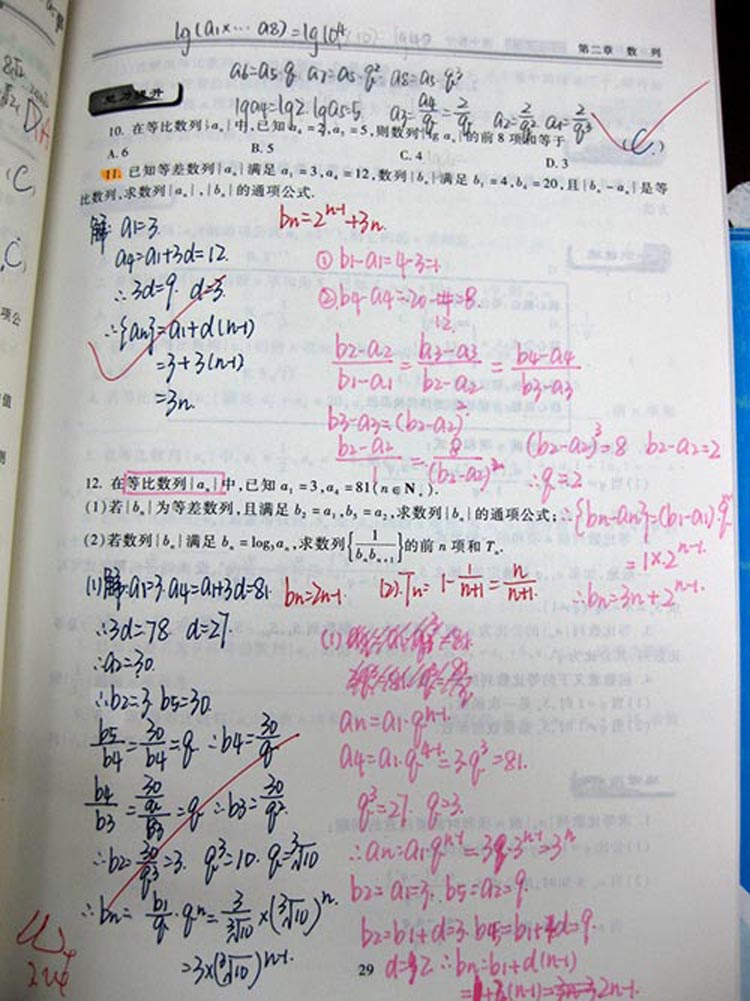 lg(a₁×⋯a₈)=lg10⁴
第二章 数 列
a6=a5·q a7=a5·q² a8=a5·q³
能力提升
lga4=lg2. lga5=5 a3=a4/q=2/q a2=2/q² a1=2/q³
10. 在等比数列{aₙ}中,已知a₄=2,a₅=5,则数列{lg aₙ}的前8项和等于 (C)
A. 6 B. 5 C. 4 D. 3
11. 已知等差数列{aₙ}满足a₁=3,a₄=12,数列{bₙ}满足b₁=4,b₄=20,且{bₙ-aₙ}是等
比数列,求数列{aₙ},{bₙ}的通项公式.
解: a1=3.
a4=a1+3d=12.
∴3d=9. d=3.
∴{an}=a1+d(n-1)
=3+3(n-1)
=3n.
bn=2ⁿ⁻¹+3n.
① b1-a1=4-3=1
② b4-a4=20-12=8.
(b2-a2)/(b1-a1)=(b3-a3)/(b2-a2)=(b4-a4)/(b3-a3)
b3-a3=(b2-a2)²
(b2-a2)/1=8/(b2-a2)² (b2-a2)³=8 b2-a2=2
∴q=2
∴{bn-an}=(b1-a1)·qⁿ⁻¹
=1×2ⁿ⁻¹
∴bn=3n+2ⁿ⁻¹.
12. 在等比数列{aₙ}中,已知a₁=3,a₄=81(n∈N₊).
(1)若{bₙ}为等差数列,且满足b₂=a₁,b₅=a₂,求数列{bₙ}的通项公式;
(2)若数列{bₙ}满足bₙ=log₃aₙ,求数列{1/(bₙbₙ₊₁)}的前n项和Tₙ.
(1)解:a1=3. a4=a1+3d=81.
∴3d=78 d=27.
∴a2=30.
∴b2=3 b5=30.
b5/b4=30/b4=q ∴b4=30/q
b4/b3=(30/q)/b3=q ∴b3=30/q².
∴b2=30/q³=3. q³=10. q=∛10
∴bn=b1/q·qⁿ=3/∛10×(∛10)ⁿ
=3×(∛10)ⁿ⁻¹
bn=2n-1. (2).Tn=1-1/(n+1)=n/(n+1).
(1)
an=a1·qⁿ⁻¹
a4=a1·q⁴⁻¹=3q³=81.
q³=27. q=3.
∴an=a1·qⁿ⁻¹=3·3ⁿ⁻¹=3ⁿ
b2=a1=3. b5=a2=9
b2=b1+d=3. b5=b1+4d=9.
d=2 ∴bn=b1+d(n-1)
=1+2(n-1)=2n-1.
29